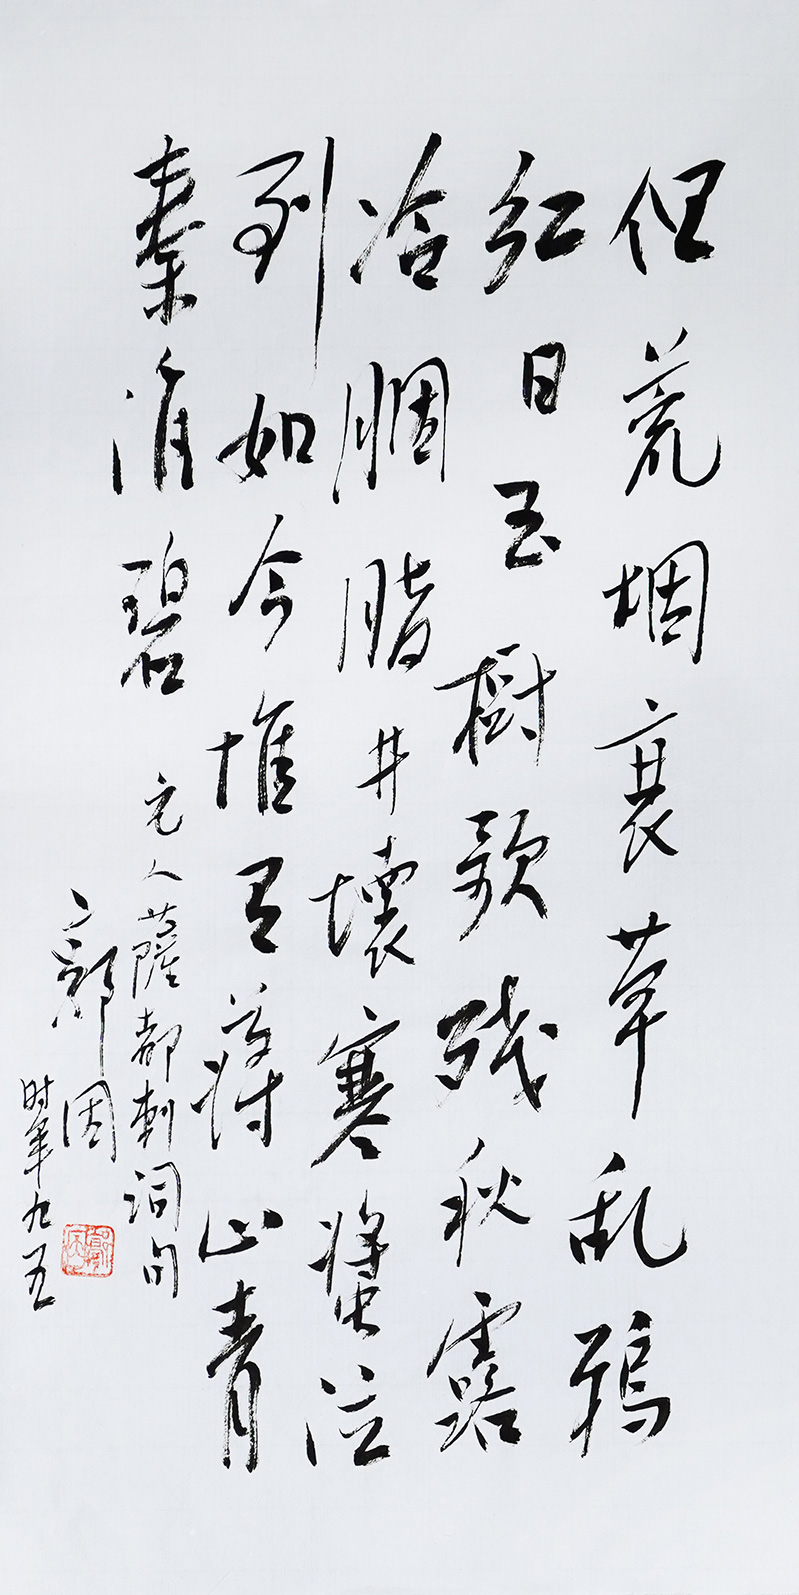 但荒烟衰草乱鸦
红日玉樹歌残秋露
冷胭脂井壞寒螀泣
到如今惟有蒋山青
秦淮碧 元人薩都刺词句
郭因
时年九五